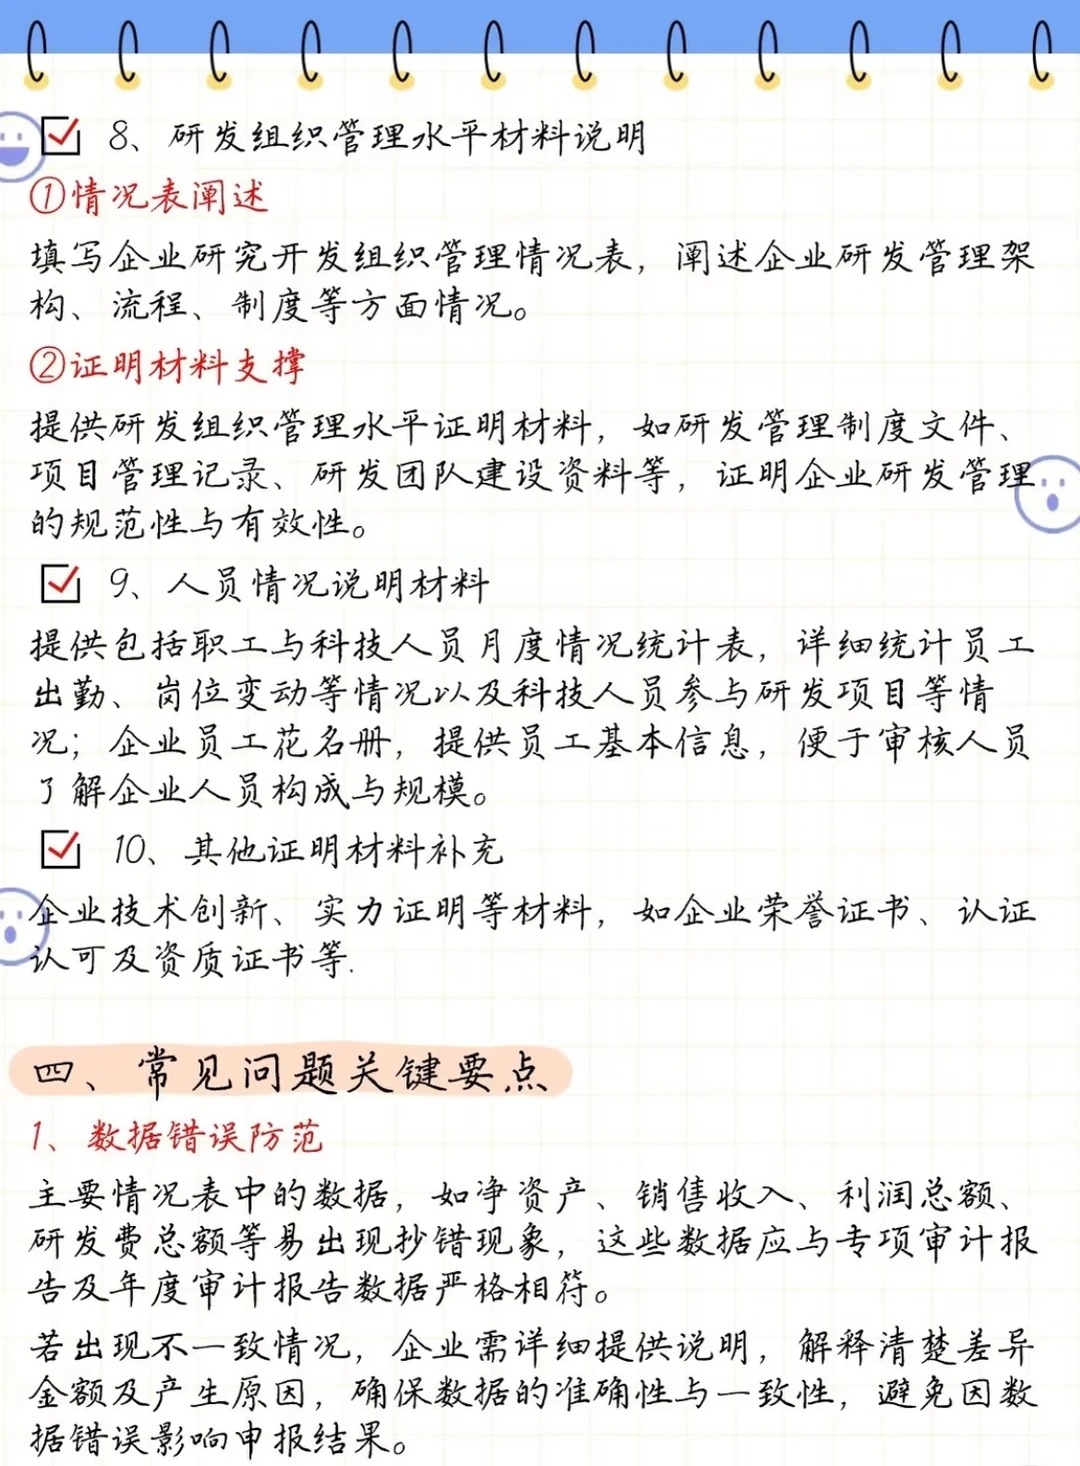 8、研发组织管理水平材料说明
①情况表阐述
填写企业研究开发组织管理情况表，阐述企业研发管理架
构、流程、制度等方面情况。
②证明材料支撑
提供研发组织管理水平证明材料，如研发管理制度文件、
项目管理记录、研发团队建设资料等，证明企业研发管理
的规范性与有效性。
9、人员情况说明材料
提供包括职工与科技人员月度情况统计表，详细统计员工
出勤、岗位变动等情况以及科技人员参与研发项目等情
况；企业员工花名册，提供员工基本信息，便于审核人员
了解企业人员构成与规模。
10、其他证明材料补充
企业技术创新、实力证明等材料，如企业荣誉证书、认证
认可及资质证书等.
四、常见问题关键要点
1、数据错误防范
主要情况表中的数据，如净资产、销售收入、利润总额、
研发费总额等易出现抄错现象，这些数据应与专项审计报
告及年度审计报告数据严格相符。
若出现不一致情况，企业需详细提供说明，解释清楚差异
金额及产生原因，确保数据的准确性与一致性，避免因数
据错误影响申报结果。